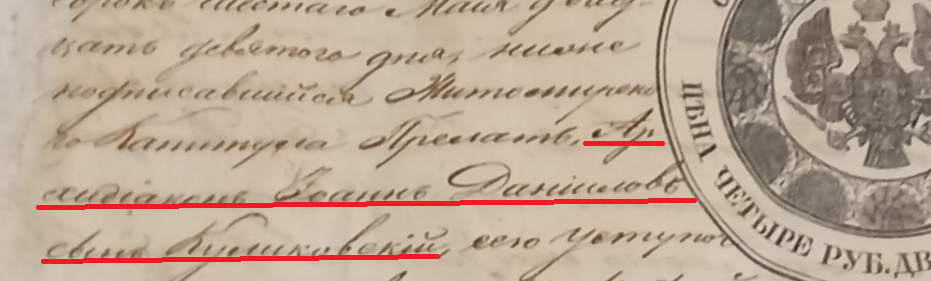 сорокъ шестаго Мая двад-
цать девятаго дня, ниже
подписавшійся Житомирска-
го Капитула Прелатъ, Ар-
хидіаконъ Іоаннъ Даніиловъ
сынъ Куликовскій, сею уступоч
ЦѢНА ЧЕТЫРЕ РУБ. ДВ